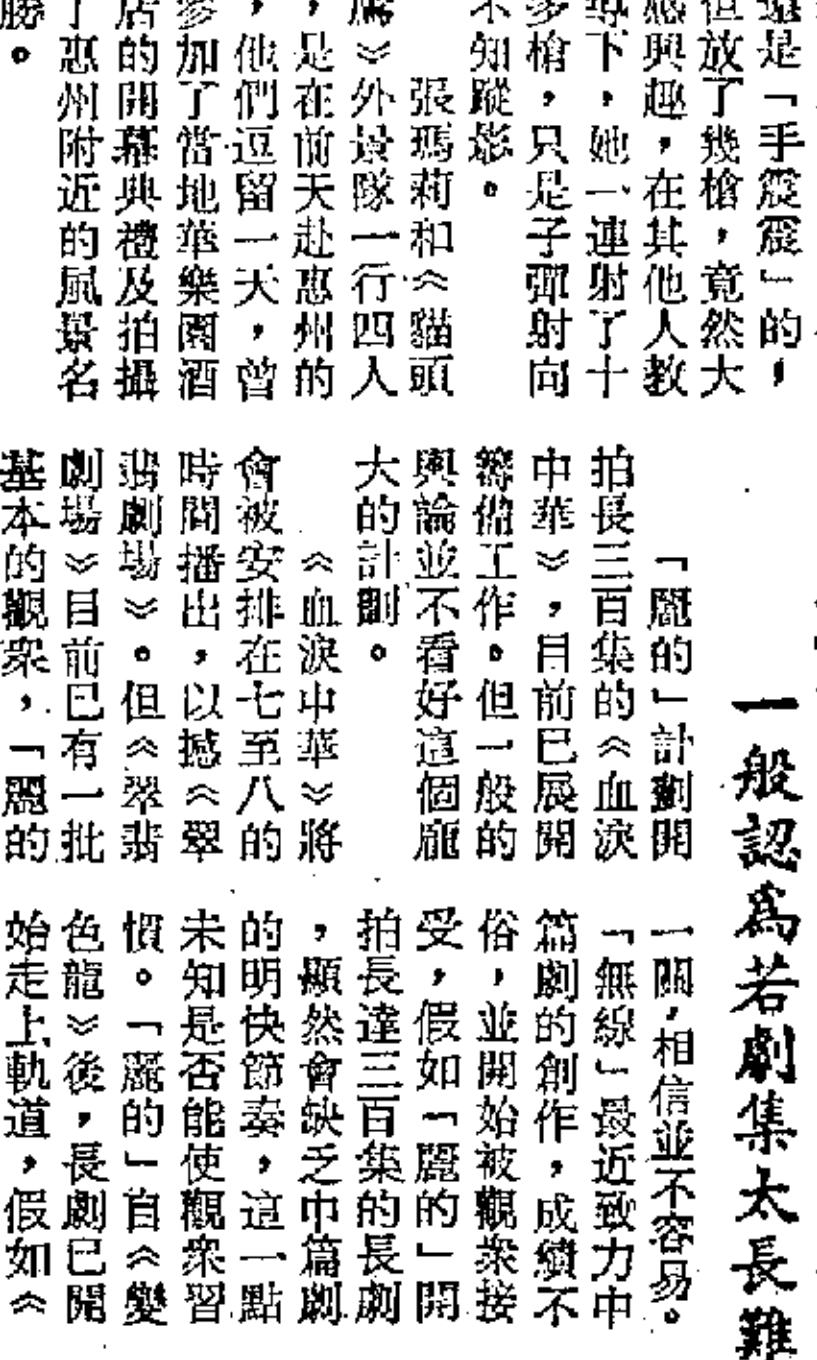 還是「手震震」的，
但放了幾槍，竟然大
感興趣，在其他人教
導下，她一連射了十
多槍，只是子彈射向
不知蹤影。
張瑪莉和《貓頭
鷹》外景隊一行四人
，是在前天赴惠州的
，他們逗留一天，曾
參加了當地華樂園酒
店的開幕典禮及拍攝
了惠州附近的風景名
勝。
一般認爲若劇集太長難
「麗的」計劃開
拍長三百集的《血淚
中華》，目前已展開
籌備工作。但一般的
輿論並不看好這個龐
大的計劃。
《血淚中華》將
會被安排在七至八的
時間播出，以撼《翠
翡劇場》。但《翠翡
劇場》目前已有一批
基本的觀衆，「麗的
一關，相信並不容易。
「無線」最近致力中
篇劇的創作，成績不
俗，並開始被觀衆接
受，假如「麗的」開
拍長達三百集的長劇
，顯然會缺乏中篇劇
的明快節奏，這一點
未知是否能使觀衆習
慣。「麗的」自《變
色龍》後，長劇已開
始走上軌道，假如《